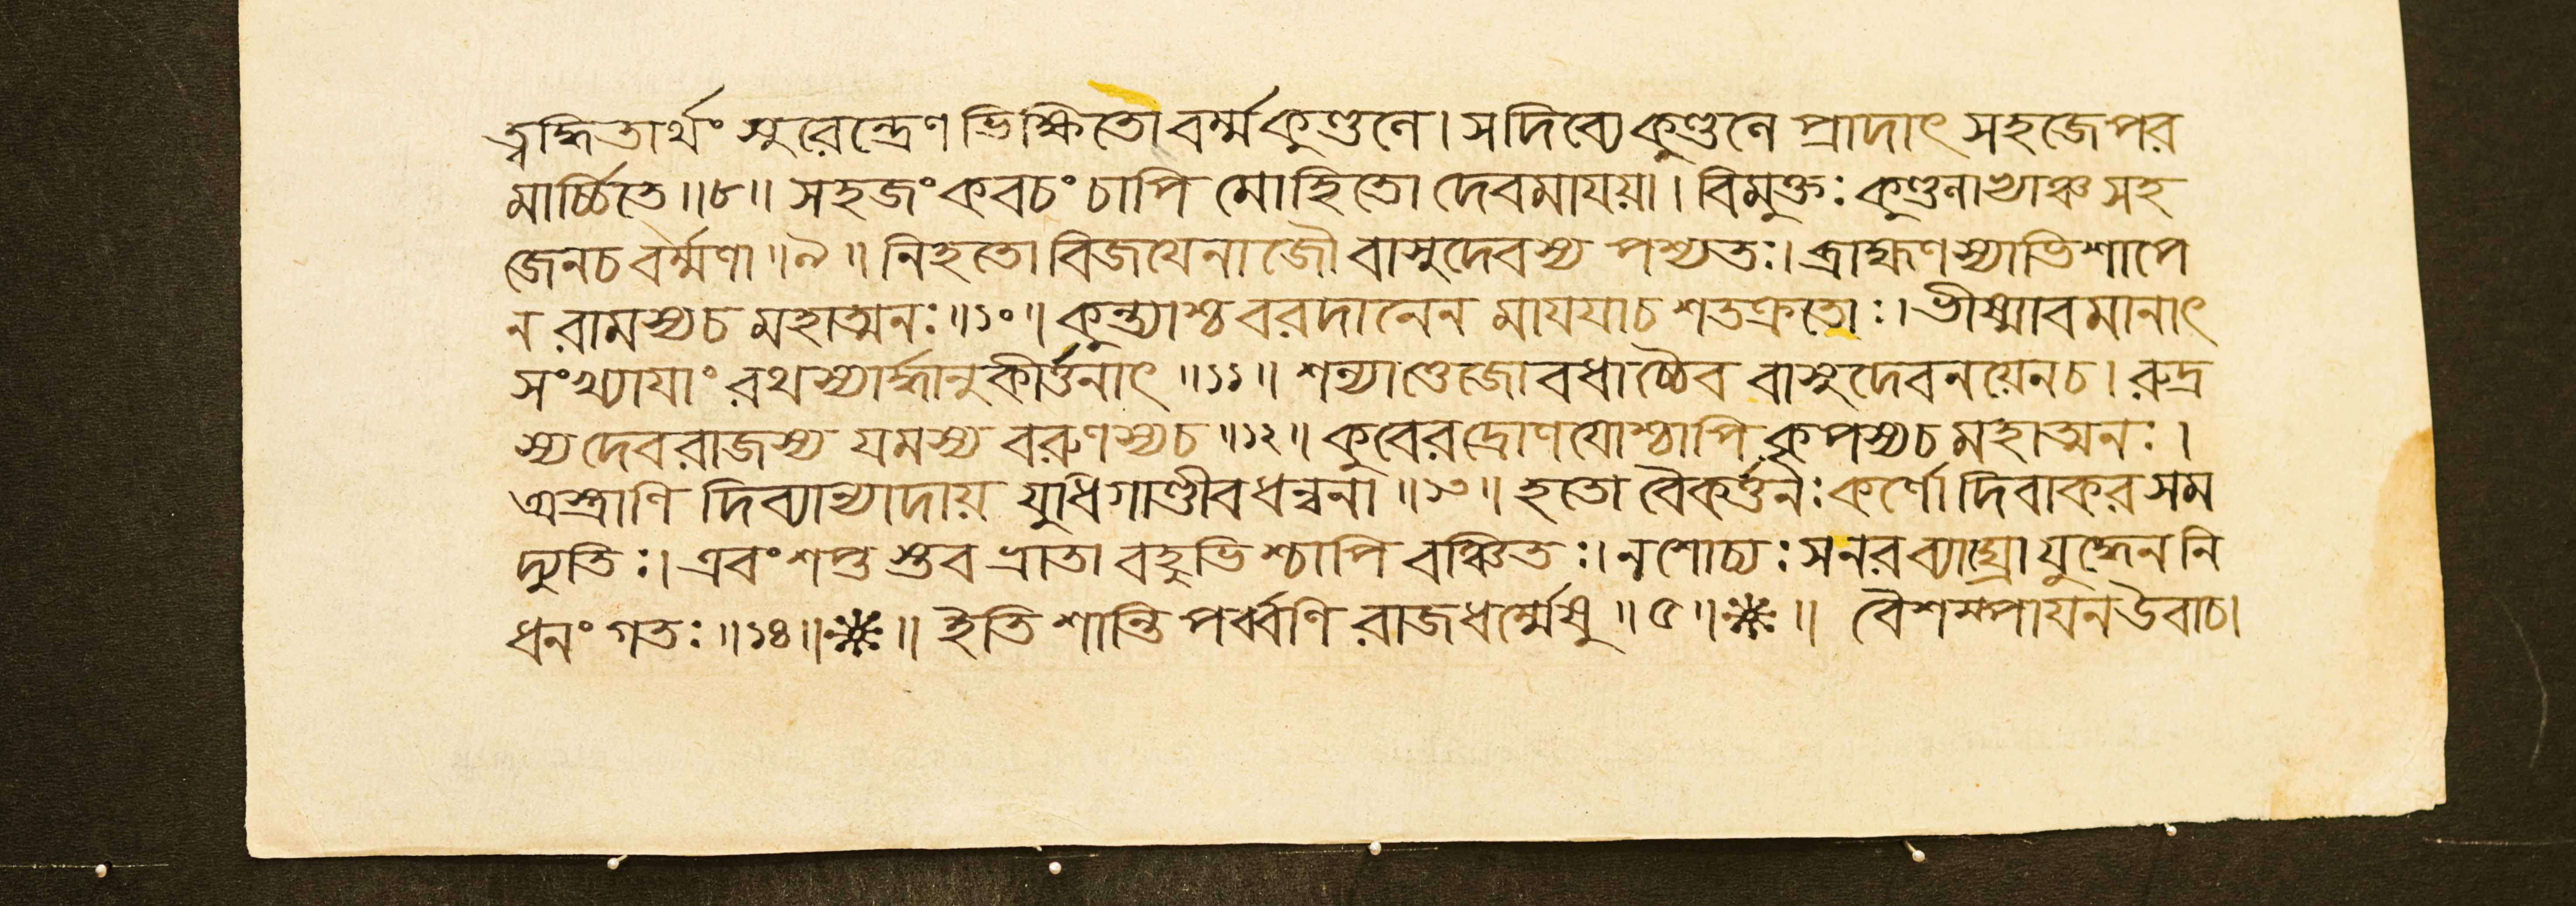 ত্বদ্ধিতার্থং সুরেন্দ্রেণ ভিক্ষিতো বর্ম্মকুণ্ডলে। স দিব্যে কুণ্ডলে প্রাদাৎ সহজে পর
মার্চ্চিতে ॥৮॥ সহজং কবচং চাপি মোহিতো দেবমাযয়া। বিমুক্তঃ কুণ্ডলাভ্যাঞ্চ সহ
জেনচ বর্ম্মণা ॥৯॥ নিহতো বিজযেনাজৌ বাসুদেবস্য পশ্যতঃ। ব্রাহ্মণস্যাভিশাপে
ন রামস্যচ মহাত্মনঃ ॥১০॥ কুন্ত্যাশ্চ বরদানেন মাযযাচ শতক্রতোঃ। ভীষ্মাবমানাৎ
সংখ্যাযাং রথস্যার্দ্ধানুকীর্ত্তনাৎ ॥১১॥ শল্যাত্তেজোবধাচ্চৈব বাসুদেবনয়েনচ। রুদ্র
স্য দেবরাজস্য যমস্য বরুণস্যচ ॥১২॥ কুবেরদ্রোণযোশ্চাপি কৃপস্যচ মহাত্মনঃ।
অস্ত্রাণি দিব্যান্যাদায় যুধি গাণ্ডীবধন্বনা ॥১৩॥ হতো বৈকর্ত্তনঃ কর্ণো দিবাকরসম
দ্যুতিঃ। এবং শপ্তস্তব ভ্রাতা বহুভিশ্চাপি বঞ্চিতঃ। ন শোচ্যঃ স নরব্যাঘ্রো যুদ্ধেন নি
ধনং গতঃ ॥১৪॥※॥ ইতি শান্তিপর্ব্বণি রাজধর্ম্মেষু ॥৫॥※॥ বৈশম্পাযন উবাচ।